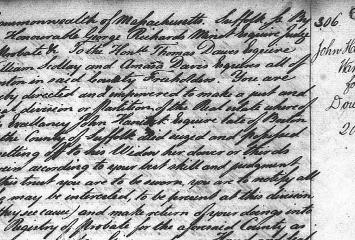 Commonwealth of Massachusetts. Suffolk ss. By
Honourable George Richards Minot Esquire judge
Probate &c To the Honble Thomas Dawes Esquire
William Smith and Amasa Davis Esquires all of
Boston in said County Freeholders. You are
hereby directed and impowered to make a just and
equal division or Partition of the Real estate whereof
his Excellency John Hancock Esquire late of Boston
in the County of Suffolk died seized and possessed
setting off to his Widow her dower or thirds
therein according to your best skill and judgment
this trust you are to be sworn, you are to notify all
may be interested, to be present at this division
they see cause, and make return of your doings into
Registry of Probate for the aforesaid County as
306
John Ha
War
fo
Dow
26